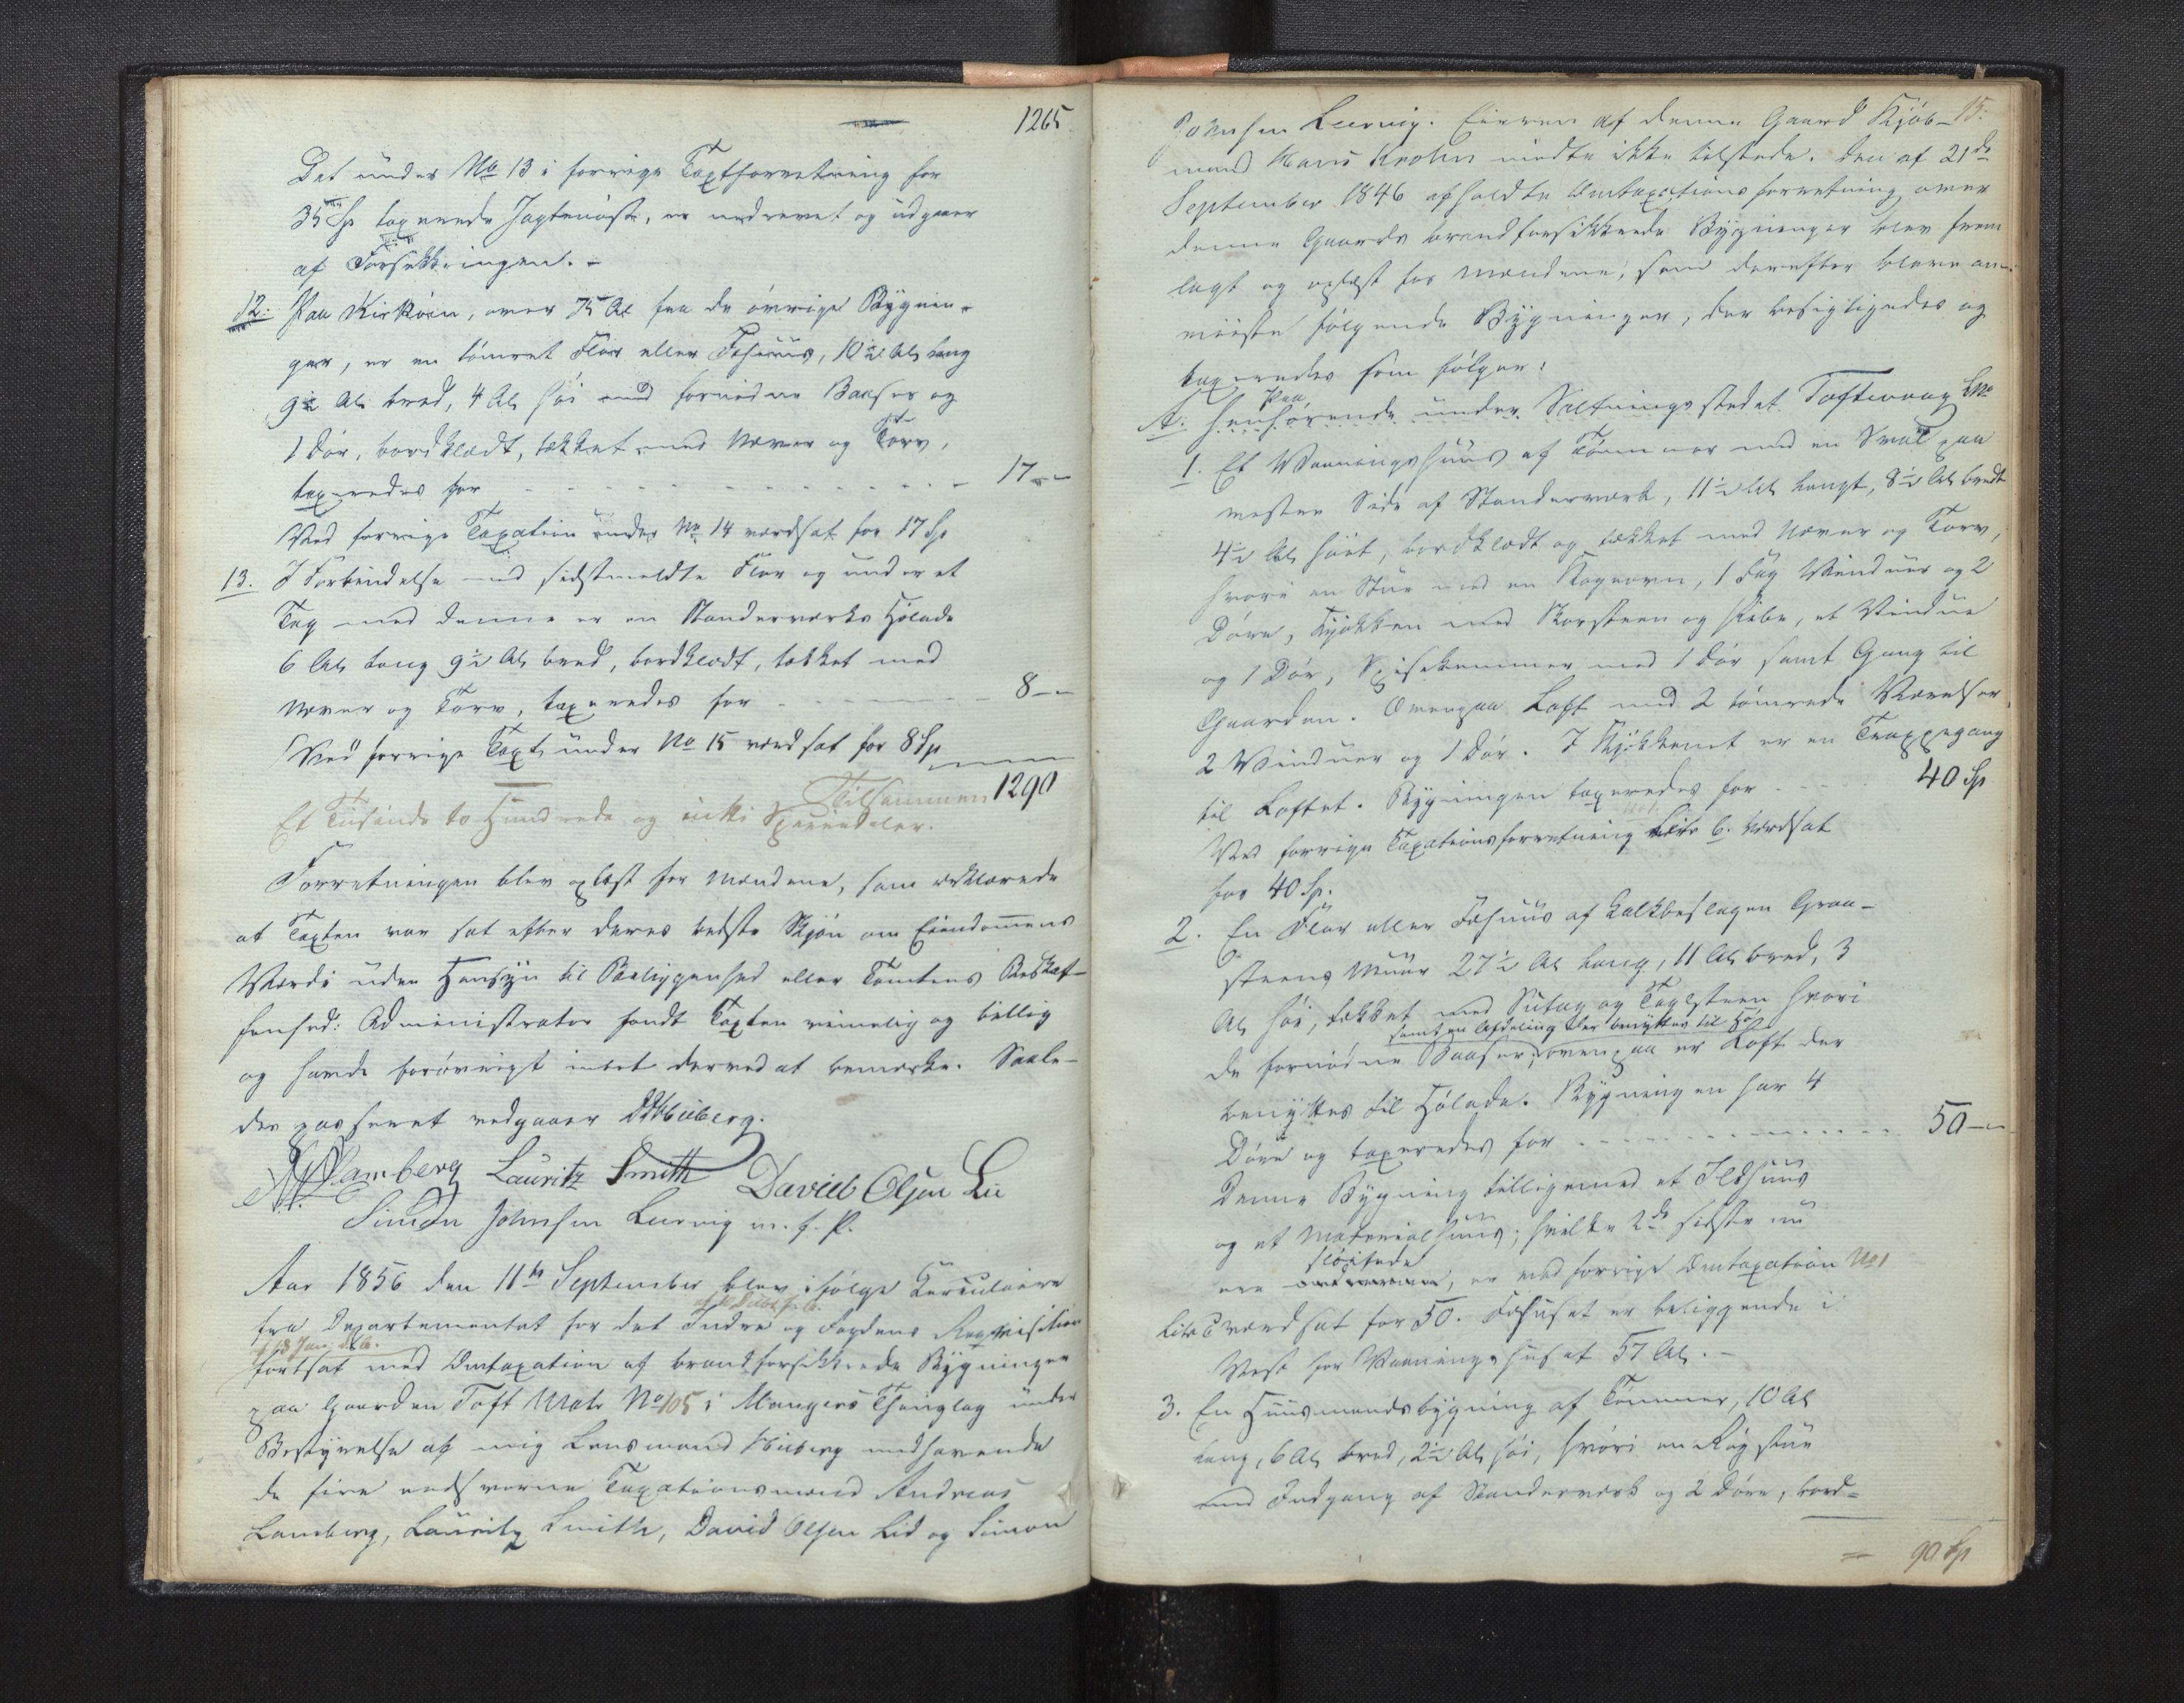 1265.
Det under No 13 i forrige Taxtforretning for
35 Sp taxerede Jagtenøst, er nedrevet og udgaaer
af Forsikkringen. -
12. Paa Kirkøen, over 75 Al fra de øvrige Bygnin-
ger, er en tømret Flor eller Fæhuus, 10½ Al lang
9½ Al bred, 4 Al høi med fornødne Baaser og
1 Dør, bordklædt, tækket med Næver og Torv,
taxeredes for - - - 17 - -
Ved forrige Taxation under No 14 værdsat for 17 Sp
13. I Forbindelse med sidstmeldte Flor og under et
Tag med denne er en Standerværks Hølade
6 Al lang 9½ Al bred, bordklædt, tækket med
Næver og Torv, taxeredes for - - - 8 - -
Ved forrige Taxt under No 15 værdsat for 8 Sp
Tilsammen 1290
Et Tusinde to Hundrede og nitti Speciedaler.
Forretningen blev oplæst for Mændene, som erklærede
at Taxten var sat efter deres bedste Skjøn om Eiendommens
Værdi uden Hensyn til Beliggenhed eller Tomtens Beskaf-
fenhed: Administrator fandt Taxten rimelig og billig
og havde forøvrigt intet derved at bemærke. Saale-
des passeret vedgaaer
Lamberg Lauritz Smith David Olsen Lie
Simon Johnsen Leervig m. f. P.
Aar 1856 den 11te September blev ifølge Circulaire
fra Departementet for det Indre og Fogdens Reqvisition
af 13 Jan. d. A.
fortsat med Omtaxation af brandforsikkrede Bygninger
paa Gaarden Toft Matr No 105 i Mangers Thinglag under
Bestyrelse af mig Lensmand medhavende
de fire edsvorne Taxationsmænd Andreas
Lamberg, Lauritz Smith, David Olsen Lid og Simon
15.
Johnsen Leervig. Eieren af denne Gaard Kjøb-
mand Hans Krohn mødte ikke tilstede. Den af 21de
September 1846 afholdte Omtaxationsforretning over
denne Gaards brandforsikkrede Bygninger blev frem
lagt og oplæst for Mændene, som derefter bleve an-
viiste følgende Bygninger, der besigtigedes og
taxeredes som følger:
Paa
A. henhørende under Saltningsstedet Toftevaag
1. Et Vaaningshuus af Tømmer med en Sval paa
vestre Side af Standerværk, 11½ Al langt, 8½ Al bredt
4½ Al høit, bordklædt og tækket med Næver og Torv,
hvori en Stue med en Kogeovn, 1 Fag Vinduer og 2
Døre, Kjøkken med Skorsteen og Pibe, et Vindue
og 1 Dør, Spisekammer med 1 Dør samt Gang til
Gaarden. Ovenpaa Loft med 2 tømrede Værelser,
2 Vinduer og 1 Dør. I Kjøkkenet er en Trappegang
til Loftet. Bygningen taxeredes for - - - 40 Sp
Ved forrige Taxationsforretning Litr b. værdsat
for 40 Sp.
2. En Flor eller Fæhuus af kalkbeslagen Graa-
steens Muur 27½ Al lang, 11 Al bred, 3
Al høi, tækket med Sutag og Taglsteen hvori
samt en Afdeling der benyttes til Hø
de fornødne Baaser; ovenpaa er Loft der
benyttes til Hølade. Bygningen har 4
Døre og taxeredes for - - - 50 - -
Denne Bygning tilligemed et Ildhuus
og et Materialhuus; hvilke 2de sidste nu
sløifede
ere, er ved forrige Omtaxation No 1
Litr C værdsat for 50. Fæhuset er beliggende i
Vest for Vaaningshuset 57 Al. -
3. En Huusmandsbygning af Tømmer, 10 Al
lang, 6 Al bred, 2½ Al høi, hvori en Røgstue
med Indgang af Standerværk og 2 Døre, bord-
= 90 Sp